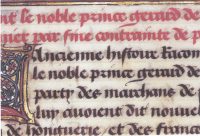 nt le noble prince gerard de
par fine contrainte de p
Ancienne histoire Racon
le noble prince gerard de
party des marchans de
luy auoient dit nouuel
de honguerie et des franc